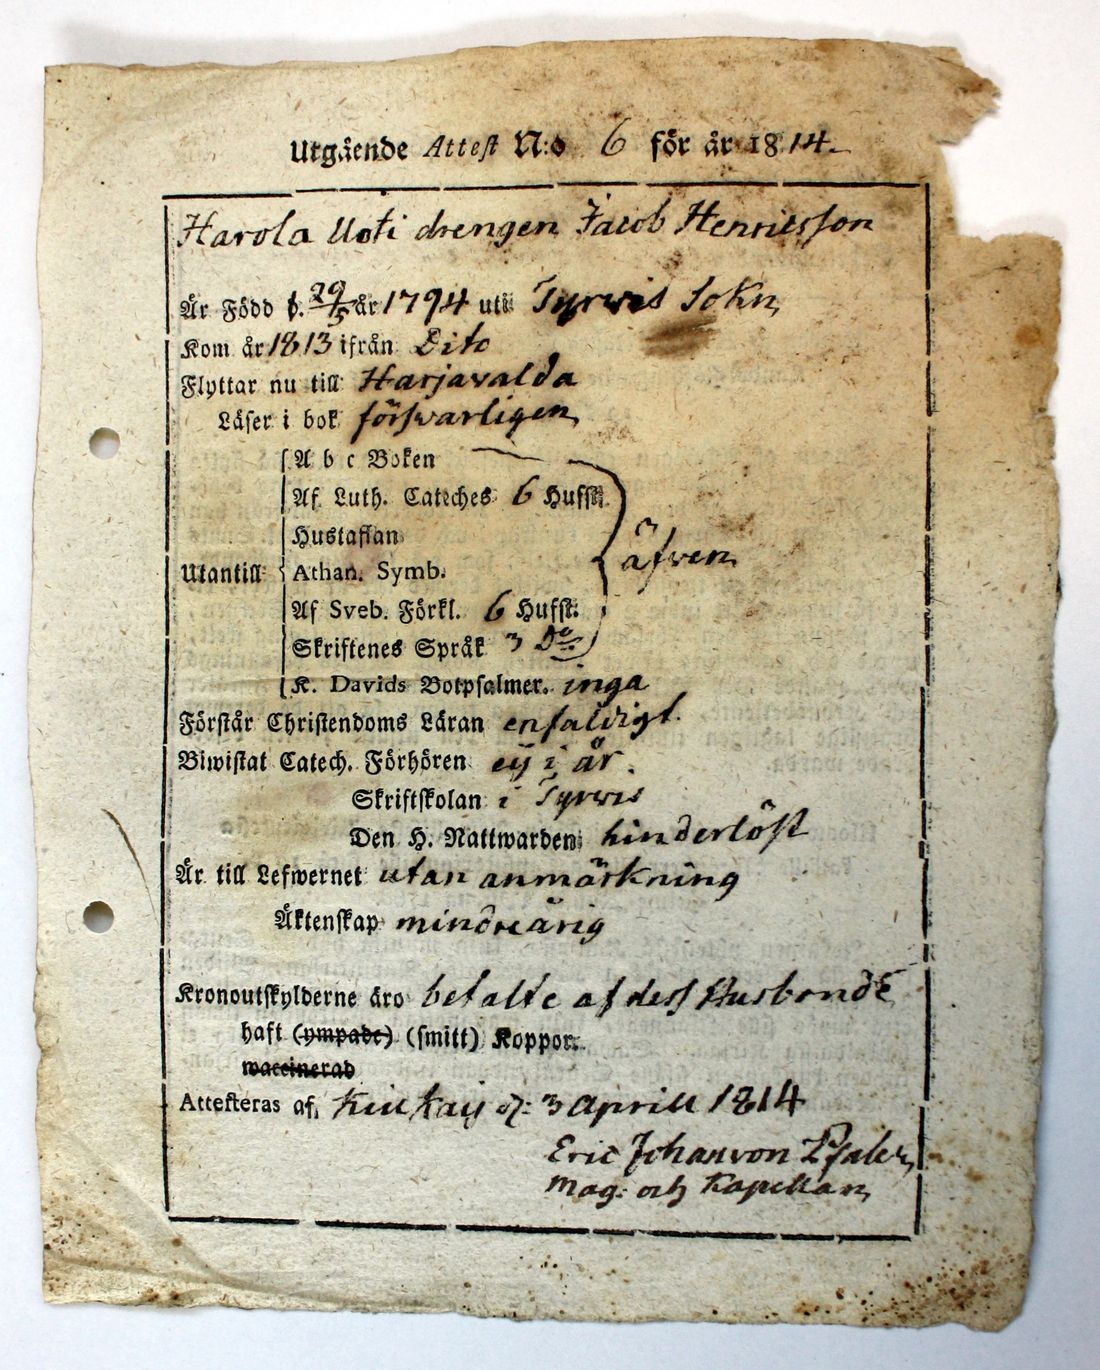 Utgående Attest N:o 6 för år 1814.
Harola Uoti drengen Jacob Henricsson
Är Född d. 29/5 år 1794 uti Tyrwis Sokn
Kom år 1813 ifrån Dito
Flyttar nu till Harjavalda
Läser i bok försvarligen
A b c Boken
Af Luth. Cateches 6 Hufst.
Hustaflan
Utantill Athan. Symb. äfven
Af Sveb. Förkl. 6 Hufst.
Skriftenes Språk 3 Do
K. Davids Botpsalmer. inga
Förstår Christendoms Läran enfaldigt.
Biwistat Catech. Förhören ej i år.
Skriftskolan i Tyrwis
Den H. Nattwarden hinderlöst
Är till Lefwernet utan anmärkning
Äktenskap mindreårig
Kronoutskylderne äro betalte af dess Husbonde
haft (ympade) (smitt) Koppor.
waccinerad
Attesteras af, 3 Aprill 1814
Eric Johan von Pfaler
Mag. och Kapellan